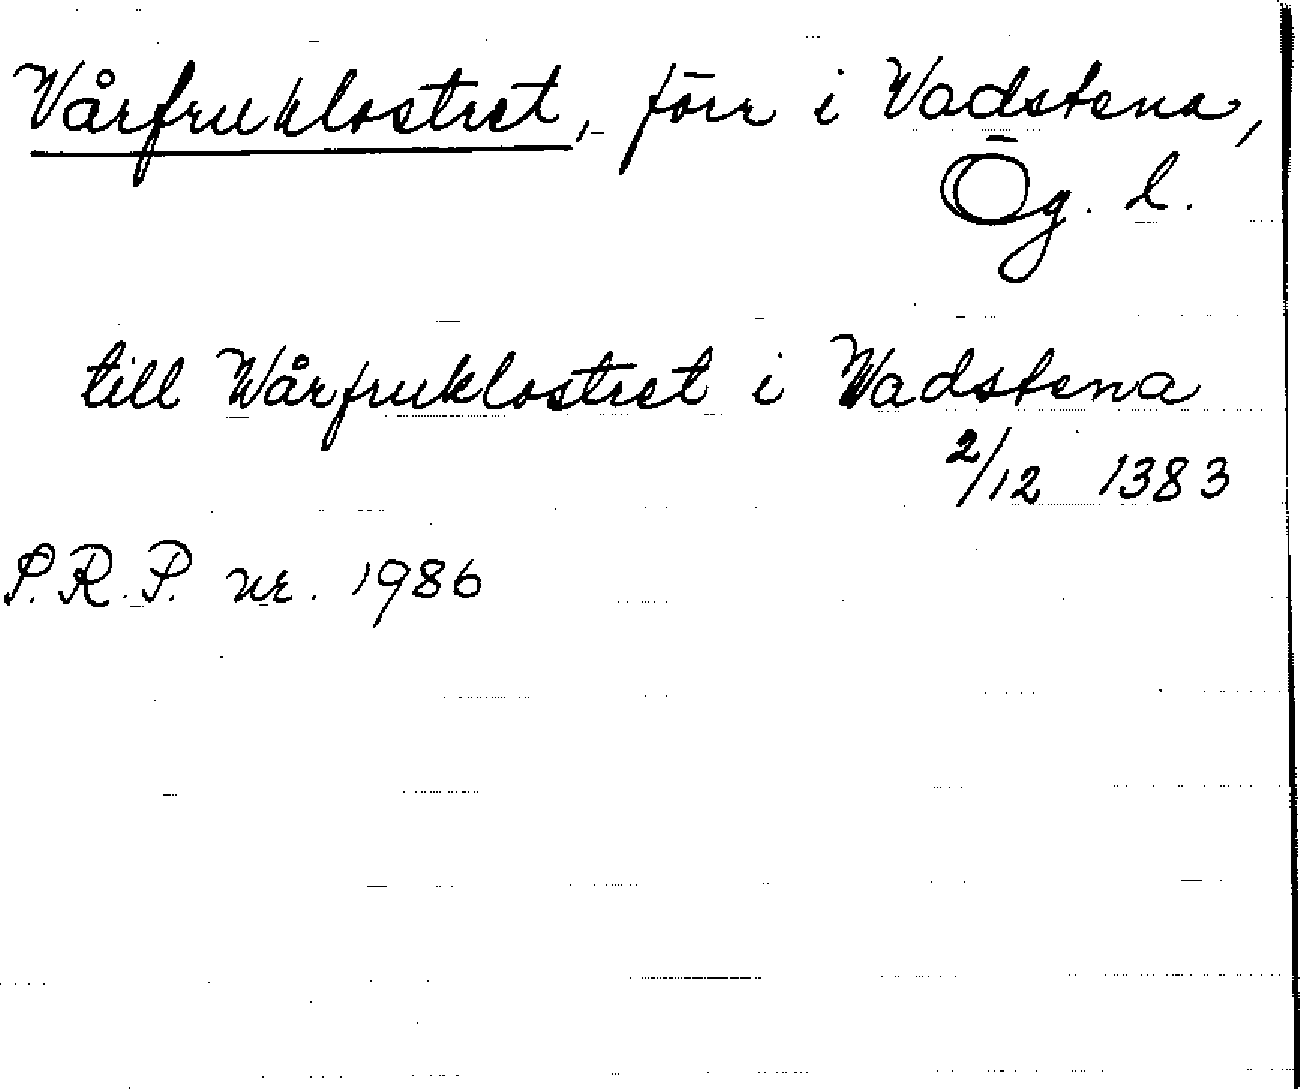 Vårfruklostret, förr i Vadstena,
Ög. l.
till Wårfruklostret i Wadstena
2/12 1383
S.R.P. nr. 1986